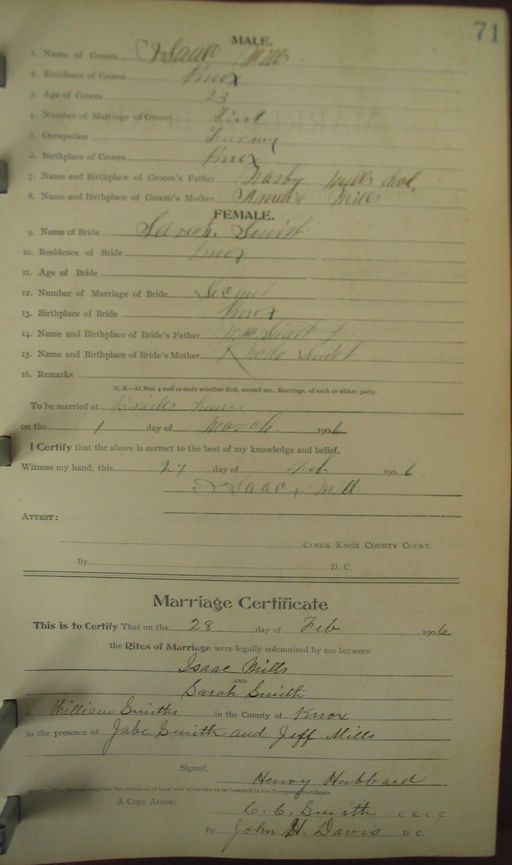 71
MALE.
1. Name of Groom Isaac Mills
2. Residence of Groom Knox
3. Age of Groom 23
4. Number of Marriage of Groom First
5. Occupation Farmer
6. Birthplace of Groom Knox
7. Name and Birthplace of Groom's Father Mills
8. Name and Birthplace of Groom's Mother Mills
FEMALE.
9. Name of Bride Sarah Smith
10. Residence of Bride Knox
11. Age of Bride
12. Number of Marriage of Bride Second
13. Birthplace of Bride Knox
14. Name and Birthplace of Bride's Father Wm Smith
15. Name and Birthplace of Bride's Mother Rhoda Smith
16. Remarks
N. B.—At Nos. 4 and 12 state whether first, second etc., Marriage, of each or either party.
To be married at Brides house
on the 1 day of March 1906
I Certify that the above is correct to the best of my knowledge and belief.
Witness my hand, this 27 day of Feb 1906
Isaac x Mill
ATTEST:
CLERK KNOX COUNTY COURT.
By D. C.
Marriage Certificate
This is to Certify That on the 28 day of Feb 1906
the Rites of Marriage were legally solemnized by me between
Isaac Mills
AND
Sarah Smith
at William Smiths in the County of Knox
in the presence of Jabe Smith and Jeff Mills
Signed, Henry Hubbard
requires the names of at least two witnesses to be inserted in the foregoing Certificate.
A Copy Attest: C. C. Smith C. K. C. C.
By John H. Davis D. C.